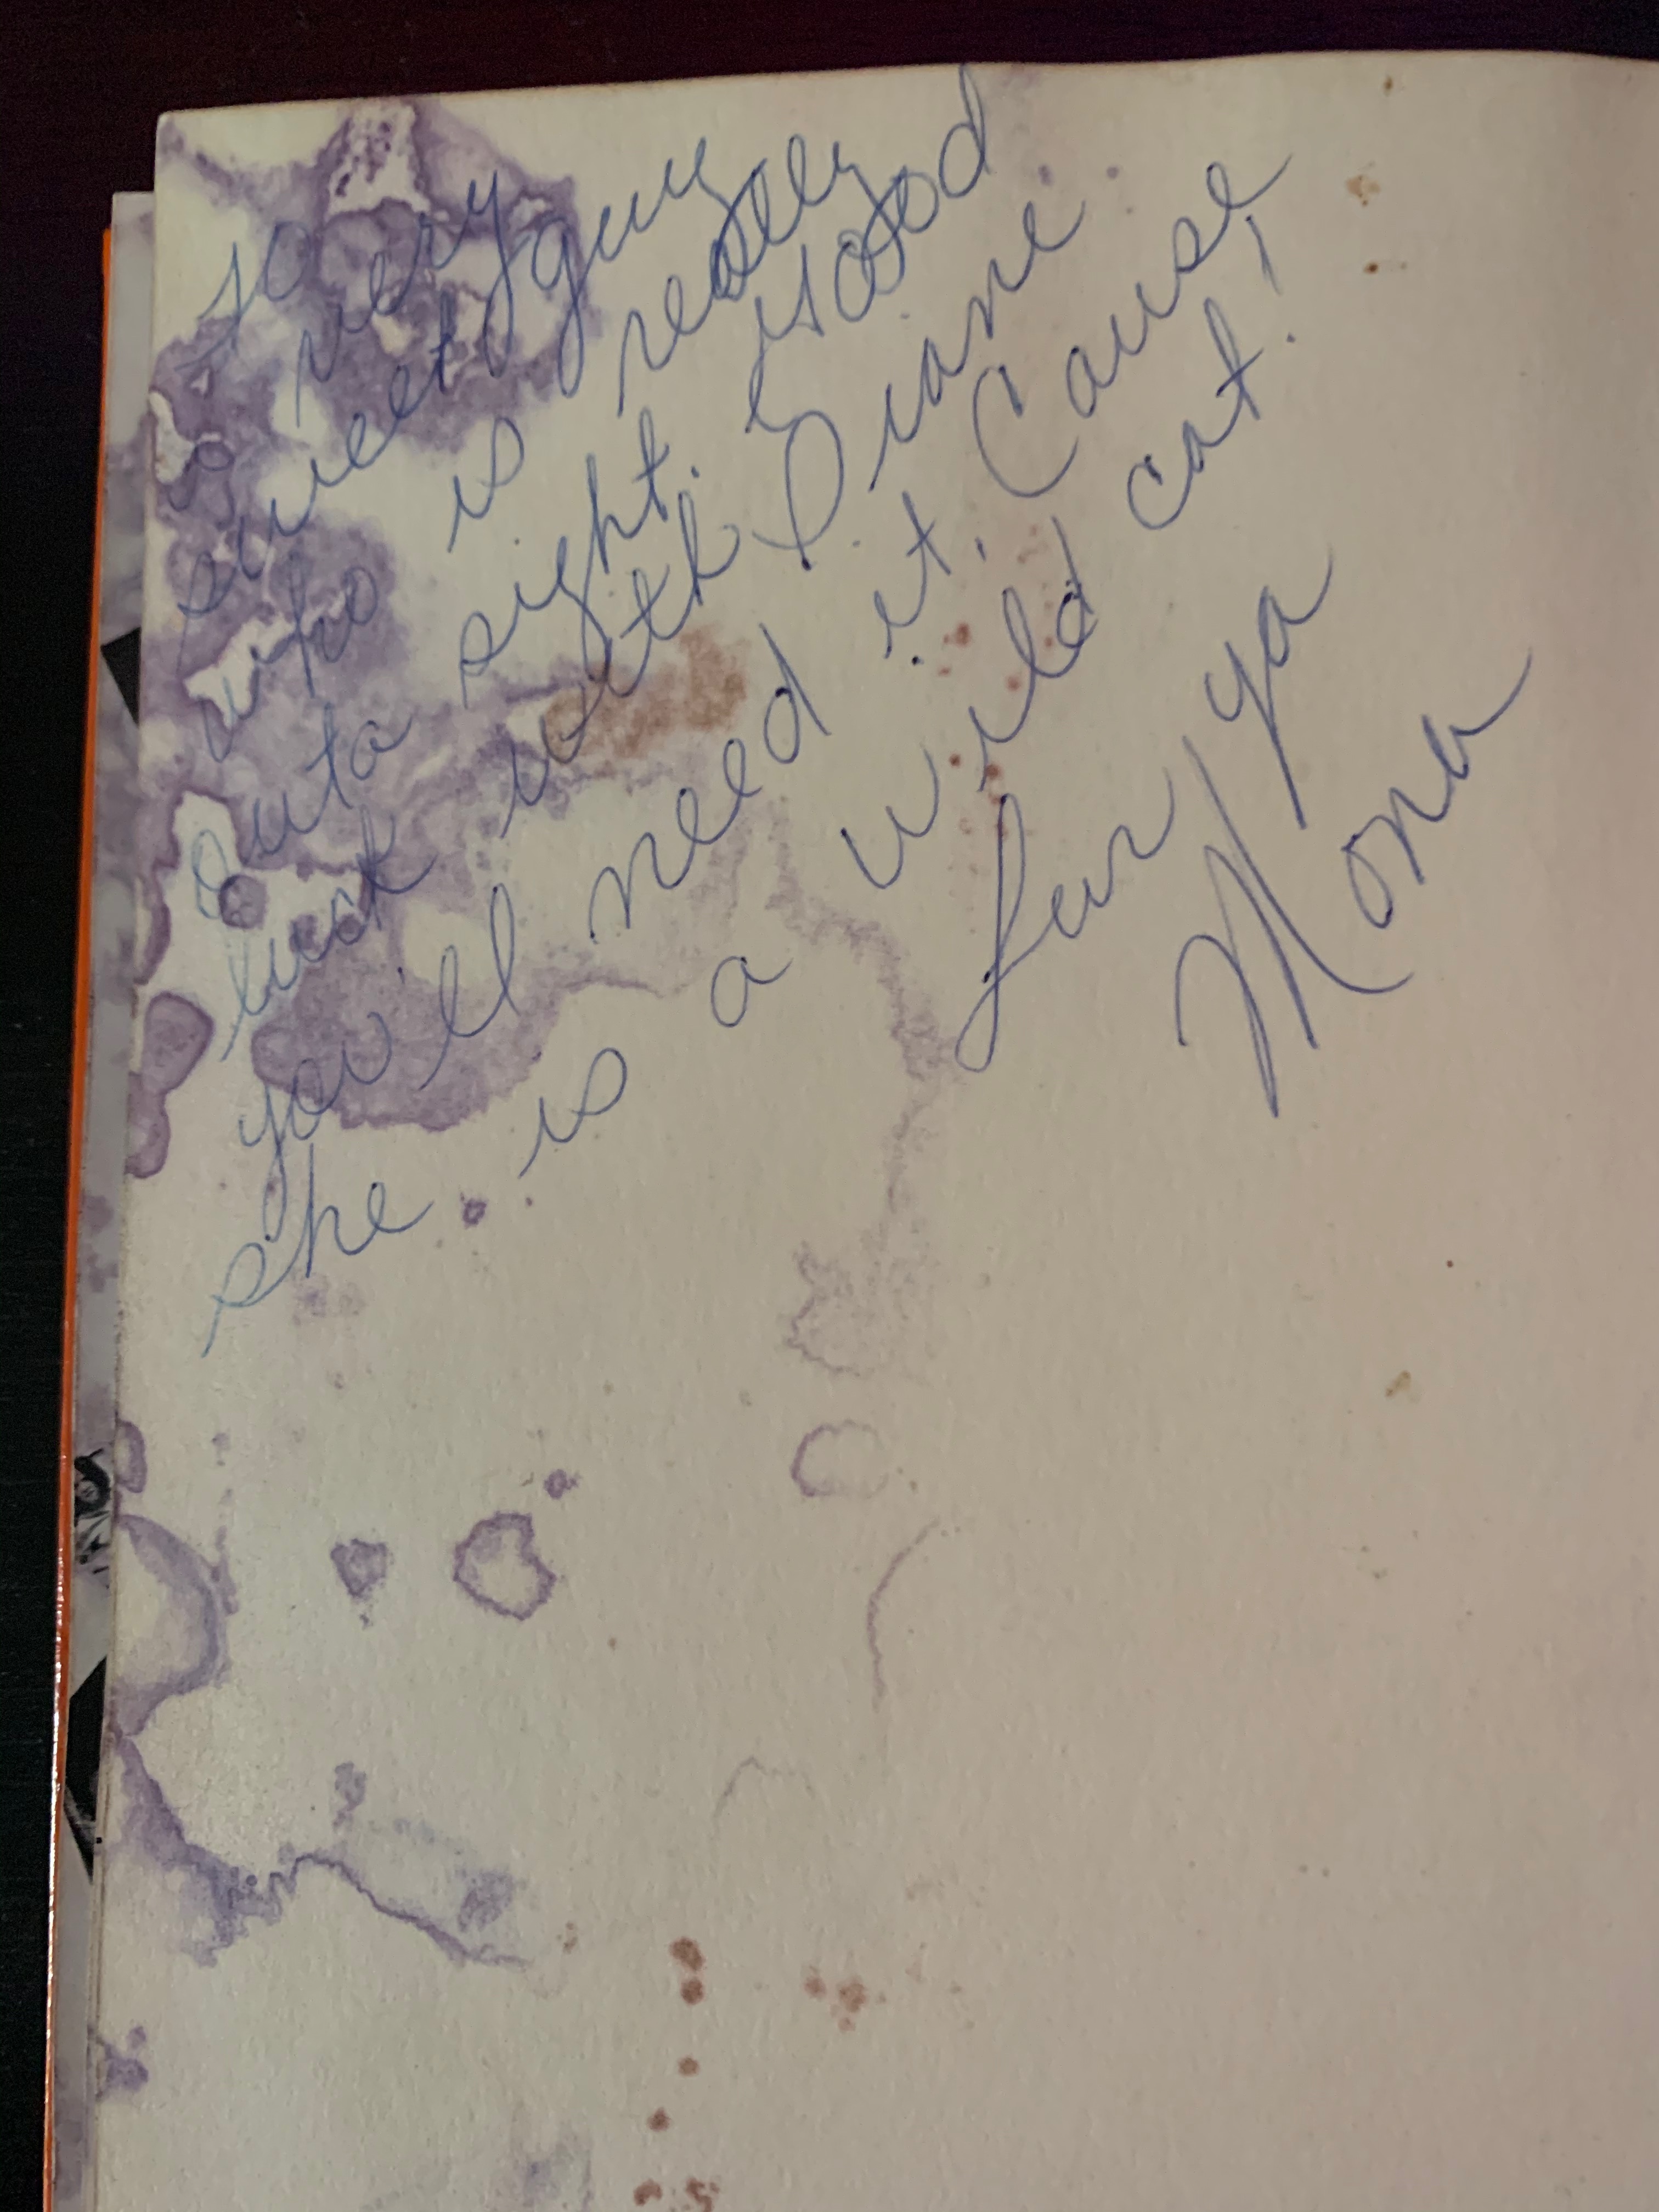 To
a very
sweet guy
who is really
outa sight. Good
luck with Diane
you'll need it, Cause
she is a wild cat!
Luv ya
Mona